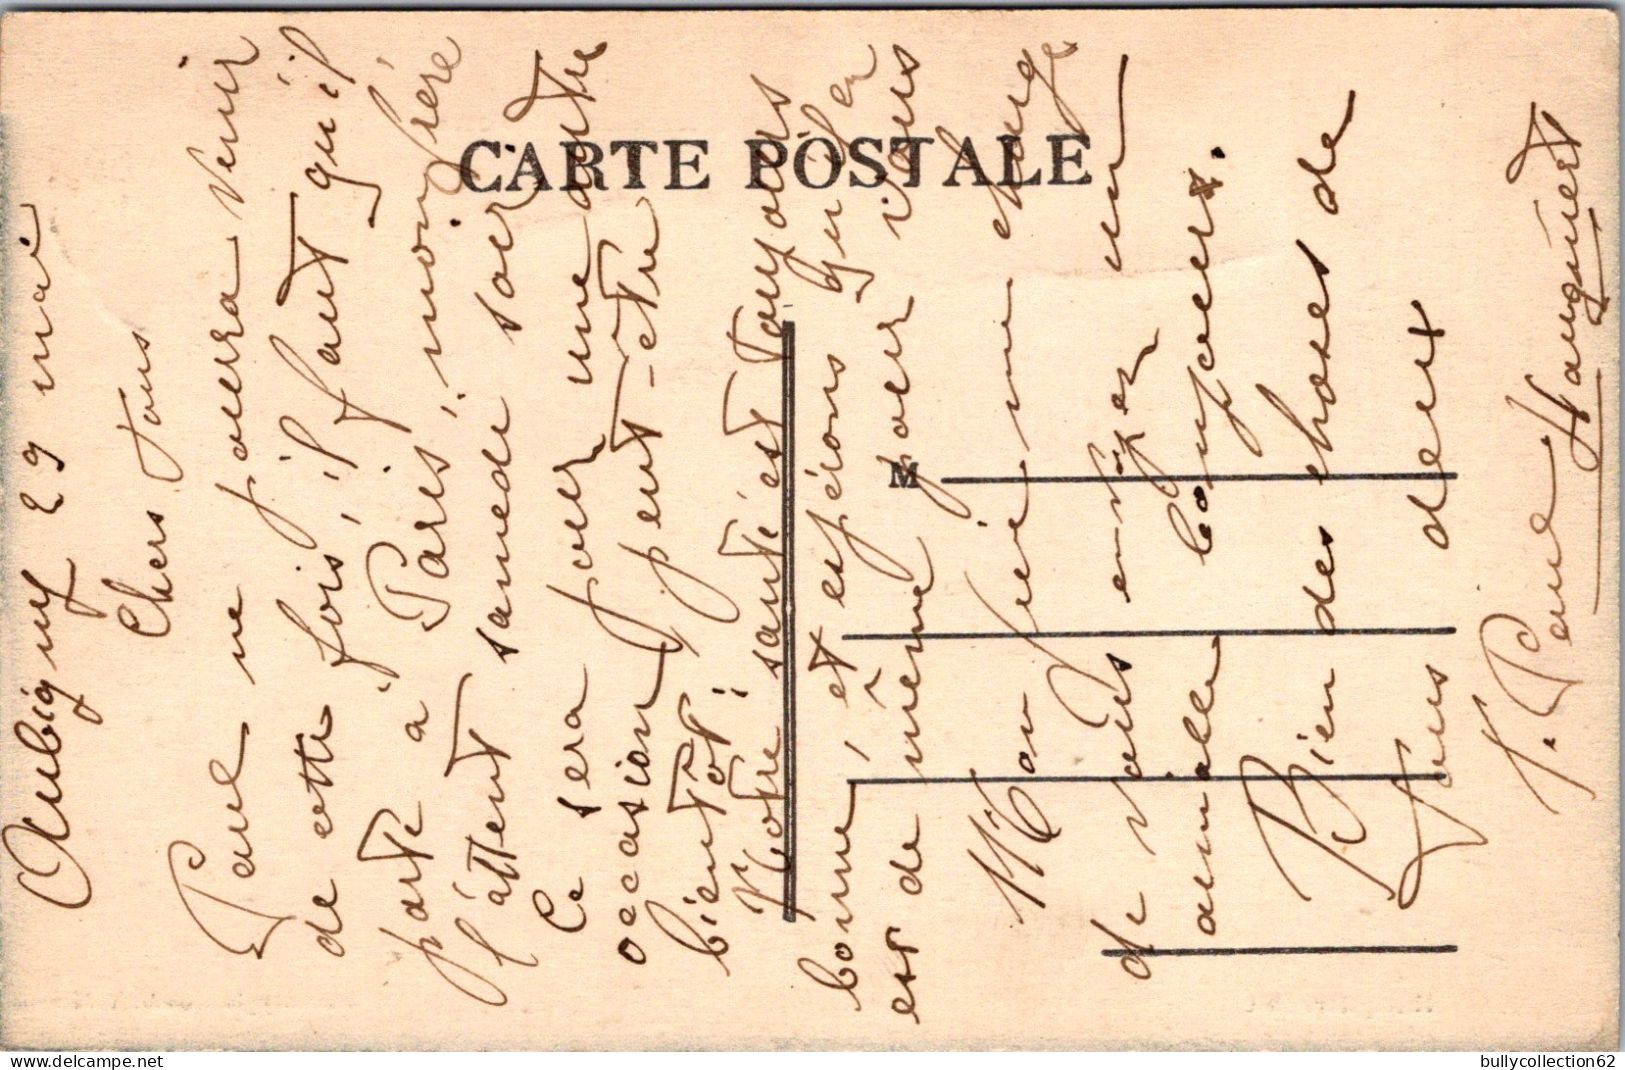 CARTE POSTALE
M
Aubigny 29 mai
Chers tous
Paul ne pourra venir
de cette fois, il faut qu'il
parte à Paris, mon frère
l'attend samedi soir
Ce sera pour une autre
occasion, peut-etre
bientôt;
Notre santé est toujours
bonne, et espérons qu'il en
est de même pour vous
Mon frère me charge
de vous envoyer un
aimable bonjour.
Bien des choses de
tous deux
V. Paul Hauquiert
bullycollection62